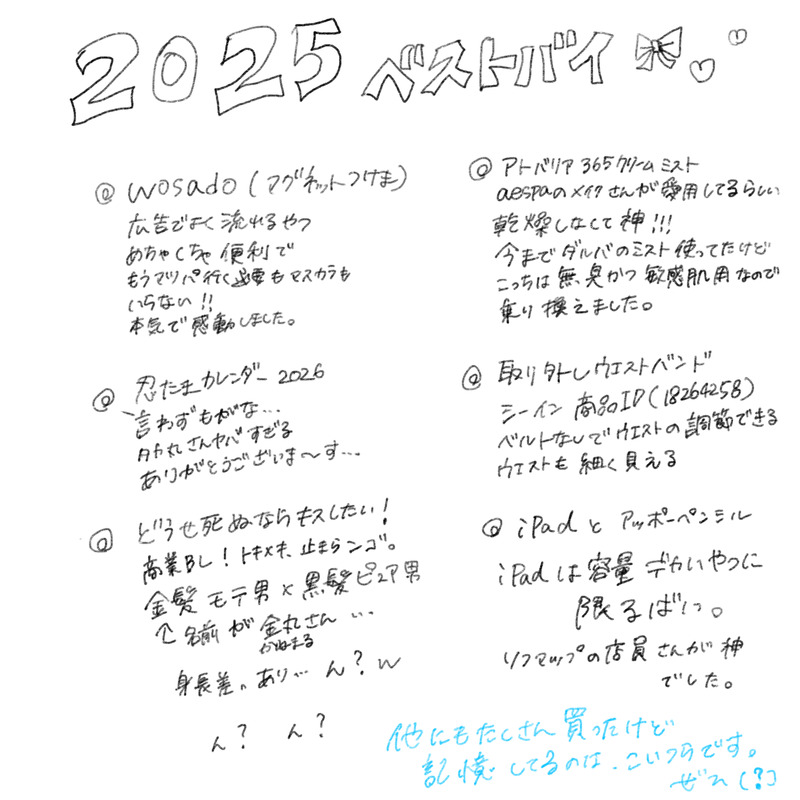 2025 ベストバイ
@ wosado (マグネットつけま)
広告でよく流れるやつ
めちゃくちゃ便利で
もうマツパ行く必要もマスカラも
いらない!!
本気で感動しました。
@ 忍たまカレンダー2026
言わずもがな...
タカ丸さんヤバすぎる
ありがとうございま〜す...
@ どうせ死ぬならキスしたい!
商業BL! トキメキ、止まらンゴ。
金髪モテ男×黒髪ピュア男
↑名前が金丸さん...
かねまる
身長差。あり... ん?w
ん? ん?
@ アトバリア365クリームミスト
aespaのメイクさんが愛用してるらしい
乾燥しなくて神!!!
今までダルバのミスト使ってたけど
こっちは無臭かつ敏感肌用なので
乗り換えました。
@ 取り外しウエストバンド
シーイン 商品ID(18264258)
ベルトなしでウエストの調節できる
ウエストも細く見える
@ iPadとアッポーペンシル
iPadは容量デカいやつに
限るばい。
ソフマップの店員さんが神
でした。
他にもたくさん買ったけど
記憶してるのは、こいつらです。
ぜひ(?)